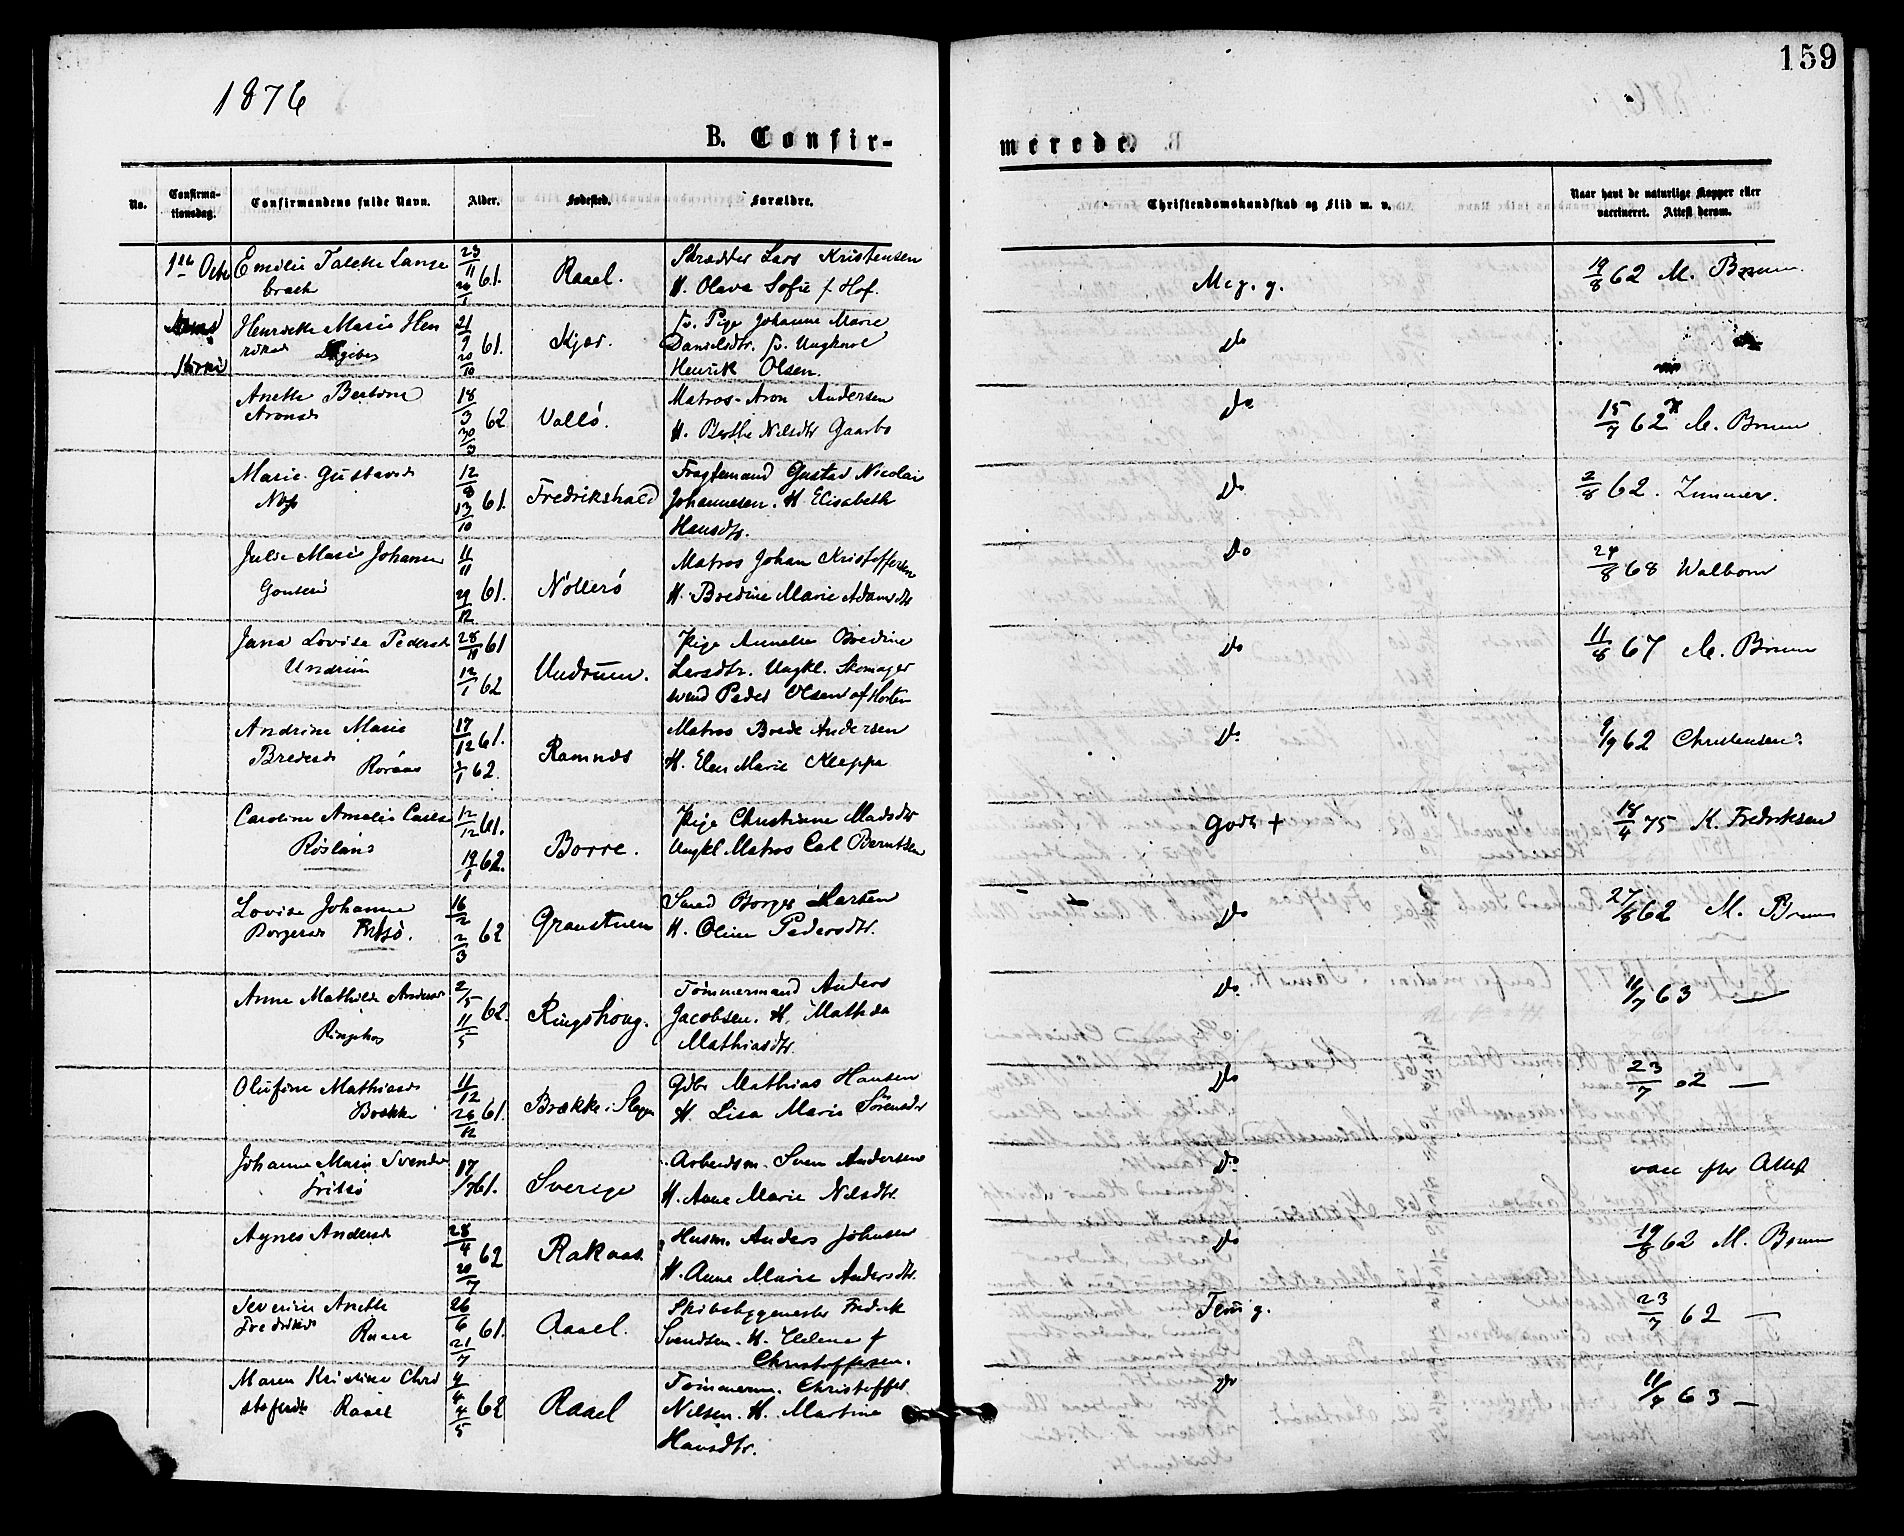 159
1876
B. Confir-
merede.
No.
Confirma-
tionsdag.
Confirmandens fulde Navn.
Alder.
Fødested.
Forældre.
Christendomskundskab og Flid m. v.
Naar havt de naturlige Kopper eller
vaccineret. Attest derom.
Emilie Lange
23/11 61.
Raael.
Skrædder Lars Kristensen
H. Olava Sofie f Hof.
Meg. g.
19/8 62 M. Bruun.
Henrikke Marie Hen
21/9 61. 20/10
Kjær.
fv. Pige Johanne Marie
Danielsdtr. fv. Ungkarl
Henrik Olsen.
Do
Anette Bertine
Aronsd
18/3 62 30/3
Vallö.
Matros Aron Andersen
H. Berthe Nilsdtr Gaarbo
Do
15/7 62 M. Bruun
Marie Gustavsd
12/8 61. 13/10
Fredrikshald
Fragtemand Gustav Nicolai
Johannesen. H. Elisabeth
Hansdtr.
Do
2/8 62. Zimmer.
Julie Marie Johanne
11/11 61. 29/12
Nötterö
Matros Johan Kristoffersen
H. Bredine Marie Adamsdtr
Do
24/8 68 Walbom
Jana Lovise Pedersd
Undrum
28/11 61
12/1 62
Undrum.
Pige Annette Bredine
Larsdtr. Ungkl. Skomager
svend Peder Olsen af Horten
Do
11/8 67 M. Bruun
Andrine Marie
Bredesd Roraas
17/12 61.
1/1 62.
Ramnæs
Matros Brede Andersen
H. Elen Marie Kleppe
Do
9/9 62 Christensen
Caroline Amalie Carlsd
Røsland
12/12 61.
19/1 62.
Borre.
Pige Christiane Madsdtr
Ungkl Matros Carl Berntsen
Godt +
18/4 75 K. Fredriksen
Lovise Johanne
Borgersd
16/2 62 2/3
Smed Borger Larsen
H. Oline Pedersdtr.
Do
27/8 62 M. Bruun
Anne Mathilde Andersd
2/5 62. 11/5
Ringshoug.
Tömmermand Anders
Jacobsen. H. Mathea
Mathiasdtr.
Do
11/7 63 —
Olufine Mathiasd
Brække
11/12 61. 26/12
Brække i Slagen
Gdbr Mathias Hansen
H. Lisa Marie Sörensdtr
Do
23/7 62 —
Johanne Marie Svensd
17/7 61.
Sverige
Arbeidsm. Sven Andersen
H. Anne Marie Nilsdtr.
Do
vacc efter Attest
Agnes Andersd
28/4 62 20/7
Husm. Anders Johnsen
H. Anne Marie Andersdtr.
Do
19/8 62 M. Bruun
Severine Anette
Fredriksd Raael
26/6 61. 21/7
Raael.
Skibsbyggmester Fredrik
Svendsen. H. Helene f
Christoffersen.
Tem g.
23/7 62 —
Maren Kristine Chri
stofersd Raael
4/4 62 4/5
Raael
Tömmerm. Christoffer
Nilsen. H. Martine
Hansdtr.
Do
11/7 63 —